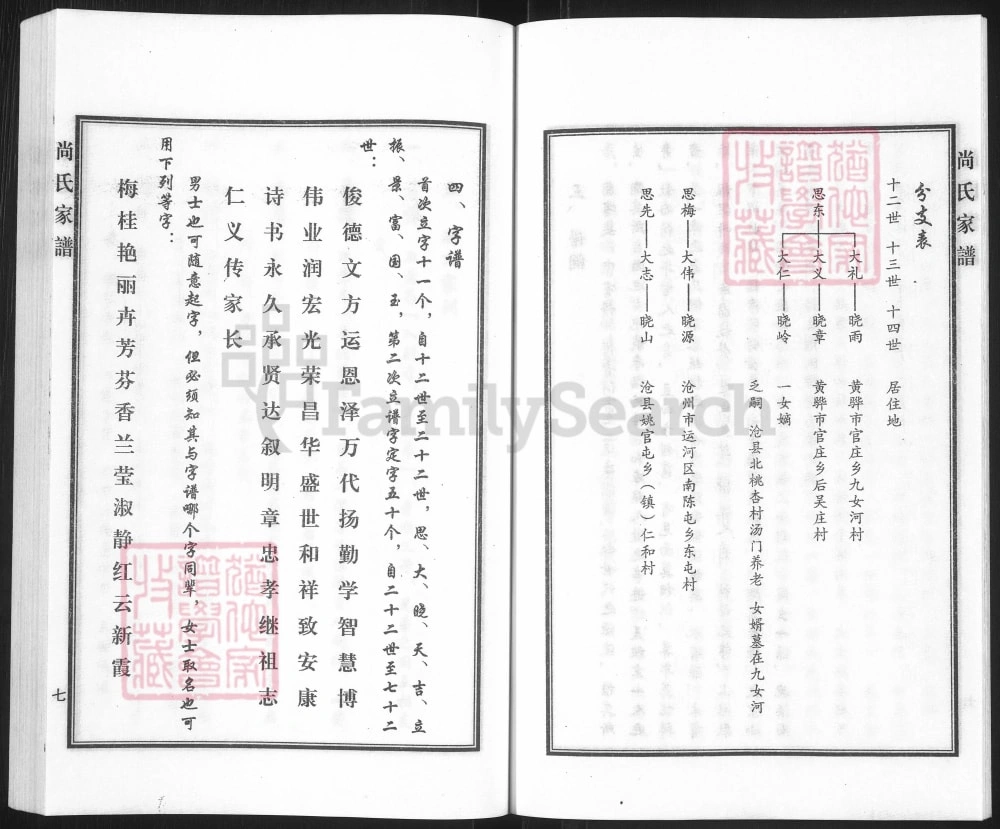 尚氏家譜
分支表
十二世 十三世 十四世 居住地
大礼——晓雨 黄骅市官庄乡九女河村
思东——大义——晓章 黄骅市官庄乡后吴庄村
大仁——晓岭 一女嫡
乏嗣 沧县北桃杏村汤门养老 女婿墓在九女河
思梅——大伟——晓源 沧州市运河区南陈屯乡东屯村
思先——大志——晓山 沧县姚官屯乡（镇）仁和村
四、字谱
首次立字十一个，自十二世至二十二世，思、大、晓、天、吉、立
振、景、富、国、玉，第二次立谱字定字五十个，自二十二世至七十二
世：
俊德文方运恩泽万代扬勤学智慧博
伟业润宏光荣昌华盛世和祥致安康
诗书永久承贤达叙明章忠孝继祖志
仁义传家长
男士也可随意起字，但必须知其与字谱哪个字同辈，女士取名也可
用下列等字：
梅桂艳丽卉芳芬香兰莹淑静红云新霞
尚氏家譜
七
FamilySearch